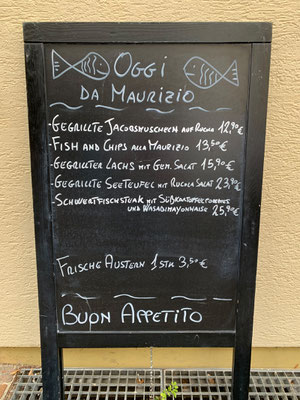 Oggi
da Maurizio
-Gegrillte Jacobsmuscheln auf Rucola 12,90€
-Fish and Chips alla Maurizio 13,50€
-Gegrillter Lachs mit Gem. Salat 15,90€
-Gegrillte Seeteufel mit Rucola Salat 23,90€
-Schwertfischsteak mit Süßkartoffelpommes
und Wasabimayonnaise 25,90€
Frische Austern 1 Stk 3,50€
Buon Appetito